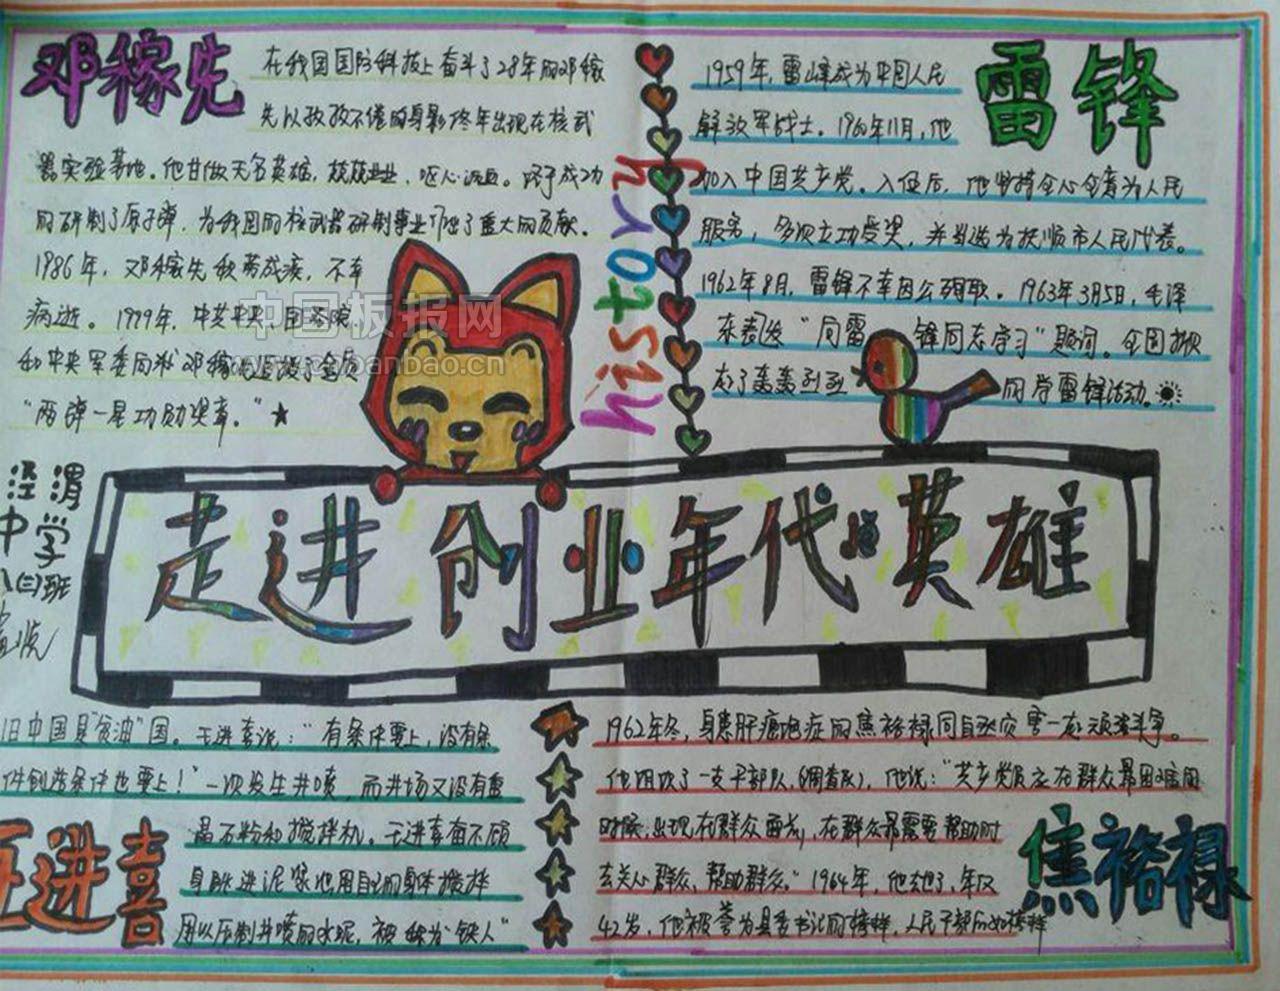 邓稼先
在我国国防科技上奋斗了28年的邓稼
先以孜孜不倦的身影终年出现在核武
器实验基地。他甘做无名英雄，兢兢业业，呕心沥血。终于成功
的研制了原子弹，为我国的核武器研制事业作出了重大的贡献。
1986年，邓稼先积劳成疾，不幸
病逝。1999年，中共中央、国务院
和中央军委向邓稼先追授了金质
“两弹一星功勋奖章。”
history
雷锋
1959年，雷峰成为中国人民
解放军战士。1960年11月，他
加入中国共产党。入伍后，他坚持全心全意为人民
服务，多次立功受奖，并当选为抚顺市人民代表。
1962年8月，雷锋不幸因公殉职。1963年3月5日，毛泽
东题发“向雷锋同志学习”题词。全国掀
起了轰轰烈烈的学雷锋活动。
中国板报网
www.cnbanbao.cn
泾渭
中学
八(三)班
走进创业年代的英雄
旧中国是“贫油”国。王进喜说：“有条件要上，没有条
件创造条件也要上！”一次发生井喷，而井场又没有重
晶石粉和搅拌机。王进喜奋不顾
身跳进泥浆池用自己的身体搅拌
用以压制井喷的水泥，被称为“铁人”
王进喜
1962年冬，身患肝癌绝症的焦裕禄同自然灾害一起顽强斗争。
他组织了一支干部队，(调查队)，他说：“共产党员应在群众最困难的
时候，出现在群众面前，在群众最需要帮助时
去关心群众，帮助群众。”1964年，他去世了，年仅
42岁，他被誉为县委书记的榜样，人民干部的好榜样
焦裕禄